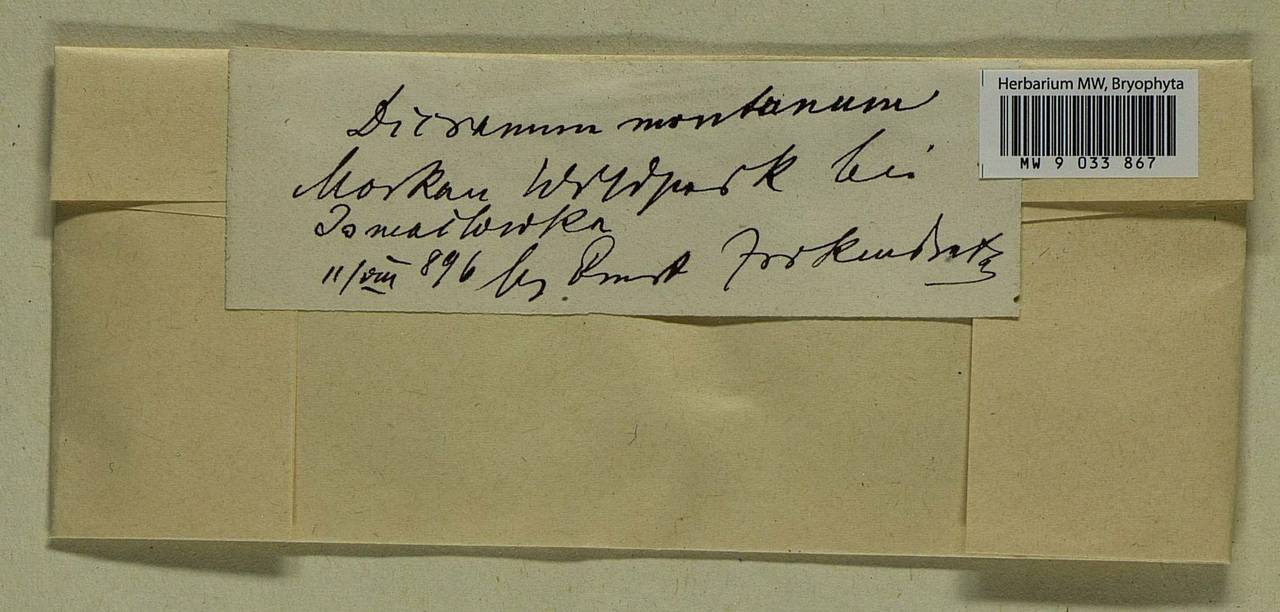 Herbarium MW, Bryophyta
MW 9 033 867
Dicranum montanum
Moskau Wildpark bei
Ismailowka
11/VIII 896 leg Ernst Zickendratz